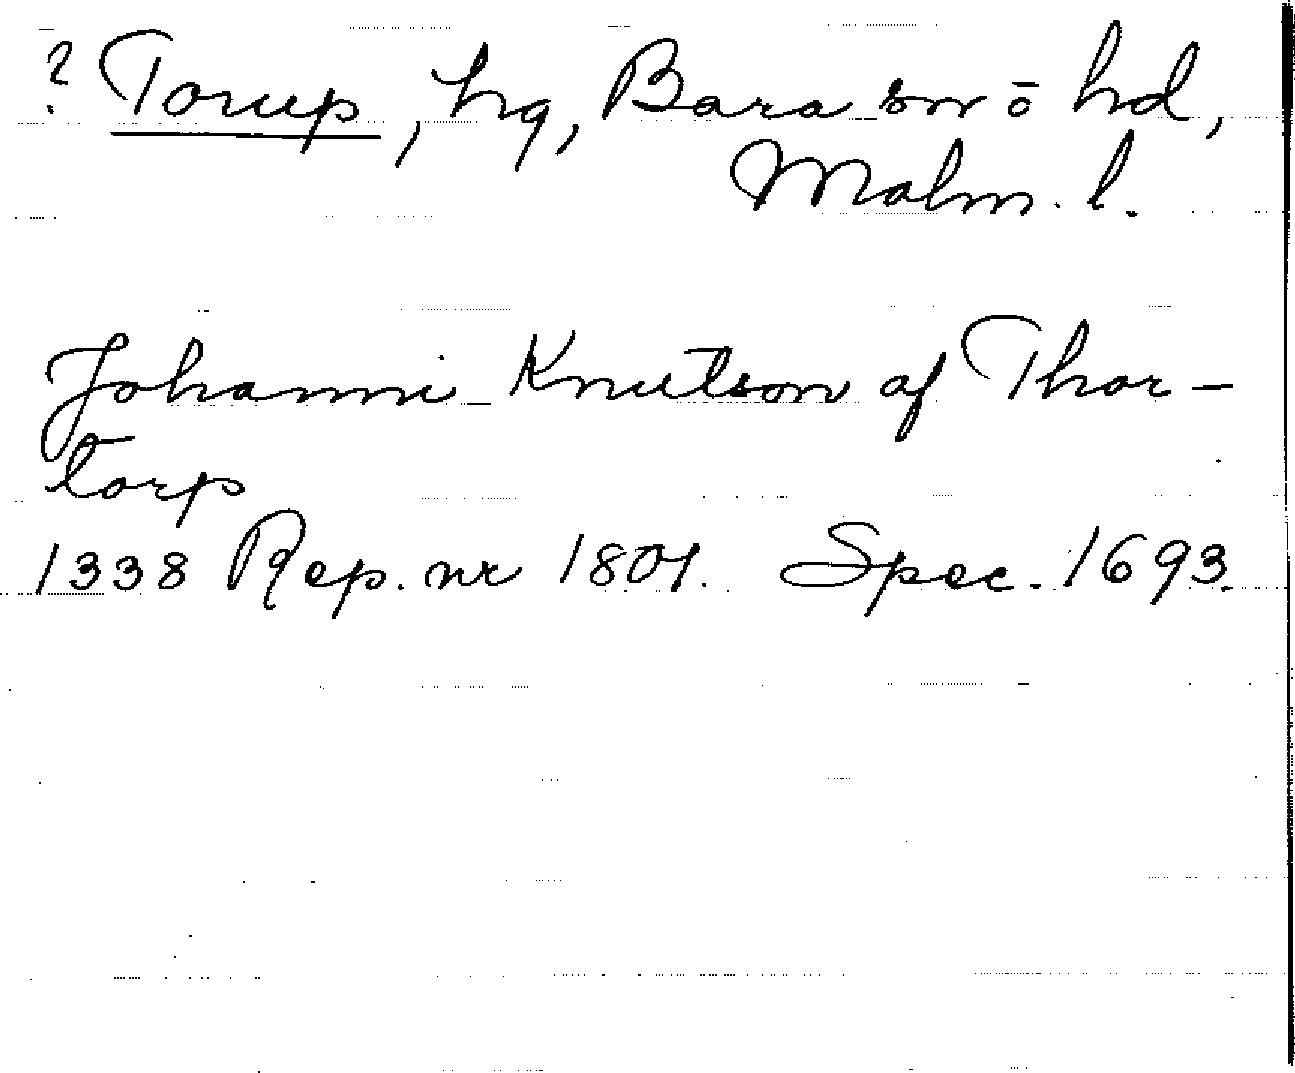 ? Torup, hg, Bara sn ō hd,
Malm. l.
Johanni Knutson af Thor-
torp
1338 Rep. nr 1801. Spec. 1693.